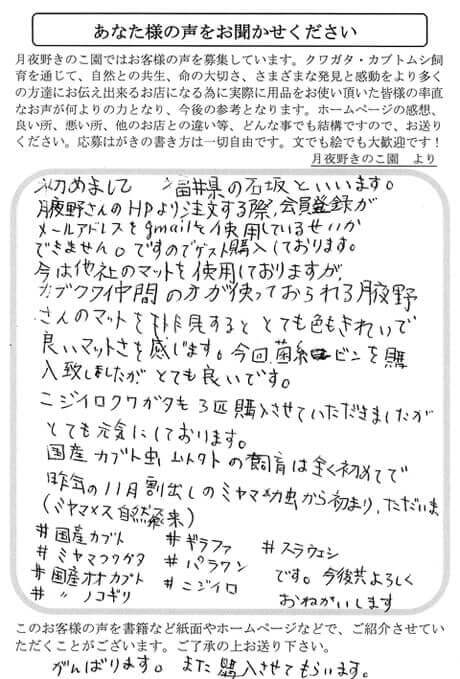 あなた様の声をお聞かせください
月夜野きのこ園ではお客様の声を募集しています。クワガタ・カブトムシ飼
育を通じて、自然との共生、命の大切さ、さまざまな発見と感動をより多く
の方達にお伝え出来るお店になる為に実際に用品をお使い頂いた皆様の率直
なお声が何よりの力となり、今後の参考となります。ホームページの感想、
良い所、悪い所、他のお店との違い等、どんな事でも結構ですので、お送り
ください。応募はがきの書き方は一切自由です。文でも絵でも大歓迎です！
月夜野きのこ園 より
初めまして 福井県の石坂といいます。
月夜野さんのHPより注文する際、会員登録が
メールアドレスをgmailを使用しているせいか
できません。ですのでゲスト購入しております。
今は他社のマットを使用しておりますが、
カブクワ仲間の方が使っておられる月夜野
さんのマットを拝見すると とても色もきれいで
良いマットさを感じます。今回菌糸ビンを購
入致しましたが とても良いです。
ニジイロクワガタも3匹購入させていただきましたが
とても元気にしております。
国産カブト虫 の飼育は全く初めてで
昨年の11月割出しのミヤマ幼虫から初まり、ただいま
(ミヤマ♀ 自然 来)
#国産カブト #ギラファ #スラウェシ
#ミヤマクワガタ #パラワン
#国産オオカブト #ニジイロ です。今後共よろしく
# 〃 ノコギリ おねがいします
このお客様の声を書籍など紙面やホームページなどで、ご紹介させてい
ただくことがございます。ご了承の上お送り下さい。
がんばります。また購入させてもらいます。